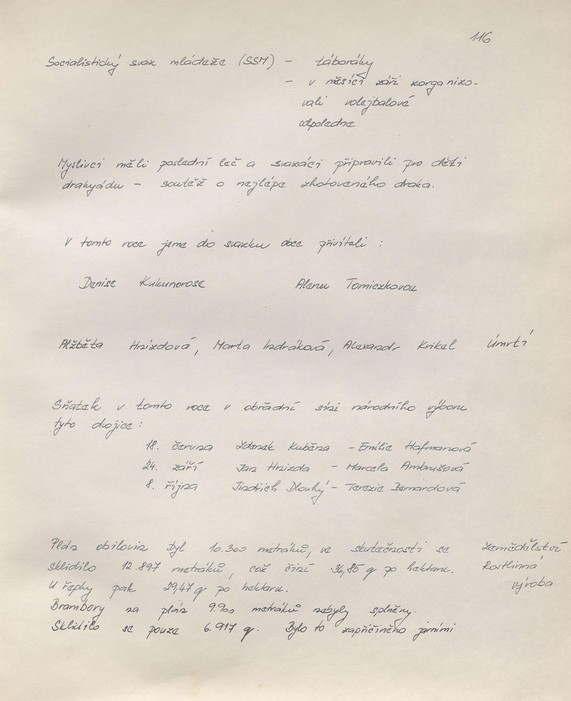 116
Socialistický svaz mládeže (SSM) - táboráky
- v měsíci září zorganizo-
vali volejbalové
odpoledne
Myslivci měli poslední leč a svazáci připravili pro děti
drakyádu - soutěž o nejlépe zhotoveného draka.
V tomto roce jsme do svazku obce přivítali :
Denise Kukunorose Alenu Tomiczkovou
Alžběta Hnizdová, Marta Indráková, Alexandr Krikel Úmrtí
Sňatek v tomto roce v obřadní síni národního výboru
tyto dvojice :
18. června Zdenek Kuběna - Emilie Hofmanová
24. září Jan Hnizda - Marcela Ambrušová
8. října Jindřich Dlouhý - Terezie Bernardová
Plán obilovin byl 10.300 metráků, ve skutečnosti se zemědělství
sklidilo 12.897 metráků, což činí po hektaru. Rostlinná
U řepky pak 29,47 q po hektaru. výroba
Brambory na plán 9.900 metráků nebyly splněny.
Sklidilo se pouze 6.917 q. Bylo to zapříčiněno jarními